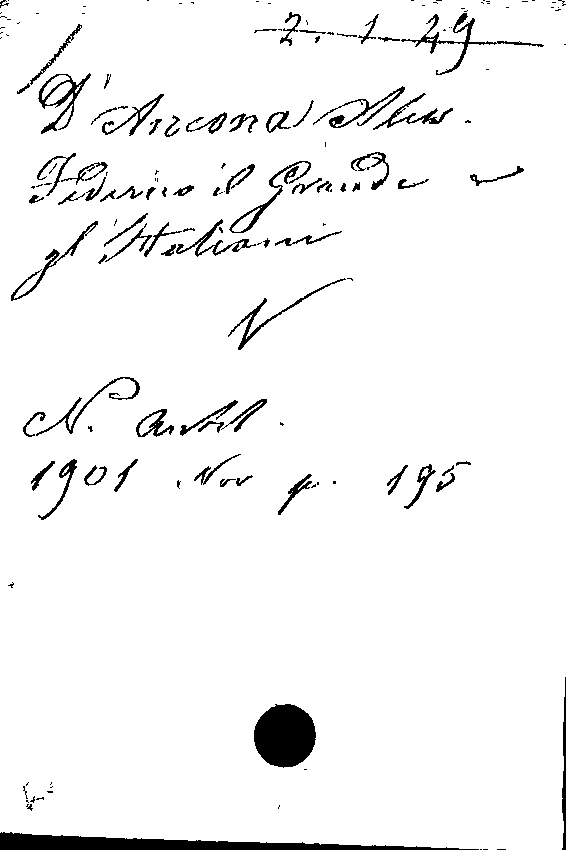 2. 1. 29
D'Ancona Aless.
Federico il Grande e
gl'Italiani
V
N. Antol.
1901 Nov p. 195